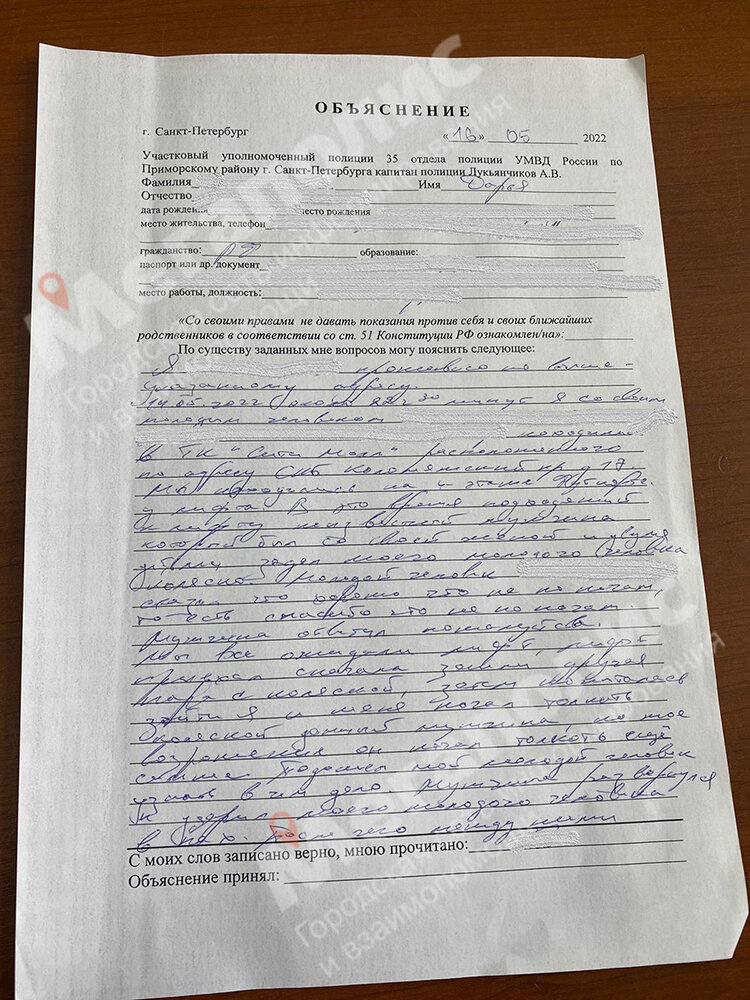 ОБЪЯСНЕНИЕ
г. Санкт-Петербург «16» 05 2022
Участковый уполномоченный полиции 35 отдела полиции УМВД России по
Приморскому району г. Санкт-Петербурга капитан полиции Лукьянчиков А.В.
Фамилия Имя Дарья
Отчество
дата рождения место рождения
место жительства, телефон
гражданство: РФ образование:
паспорт или др. документ
место работы, должность:
«Со своими правами не давать показания против себя и своих ближайших
родственников в соответствии со ст. 51 Конституции РФ ознакомлен/на»:
По существу заданных мне вопросов могу пояснить следующее:
Я проживаю по выше-
указанному адресу.
14.05.2022 около 22 ч 30 минут я со своим
молодым человеком
находились
в ТК "Сити Молл" расположенного
по адресу СПб Коломяжский пр д 17
Мы находились на 4 этаже
у лифта В это время подходящий
к лифту неизвестный мужчина
который был со своей женой и двумя
детьми задел моего молодого человека
коляской молодой человек
сказал что хорошо что не по ногам,
то есть спасибо что не по ногам.
Мужчина ответил пожалуйста.
Мы все ожидали лифт, лифт
приехал сначала зашли другая
пара с коляской, затем попыталась
зайти я и меня начал толкать
коляской данный мужчина на мое
возражение он начал толкать ещё
сильнее Подошел мой молодой человек
узнать в чем дело. Мужчина развернулся
и ударил моего молодого человека
в пах. После чего между ними
С моих слов записано верно, мною прочитано:
Объяснение принял:
Мегаполис
Городской
и взаимопомощи